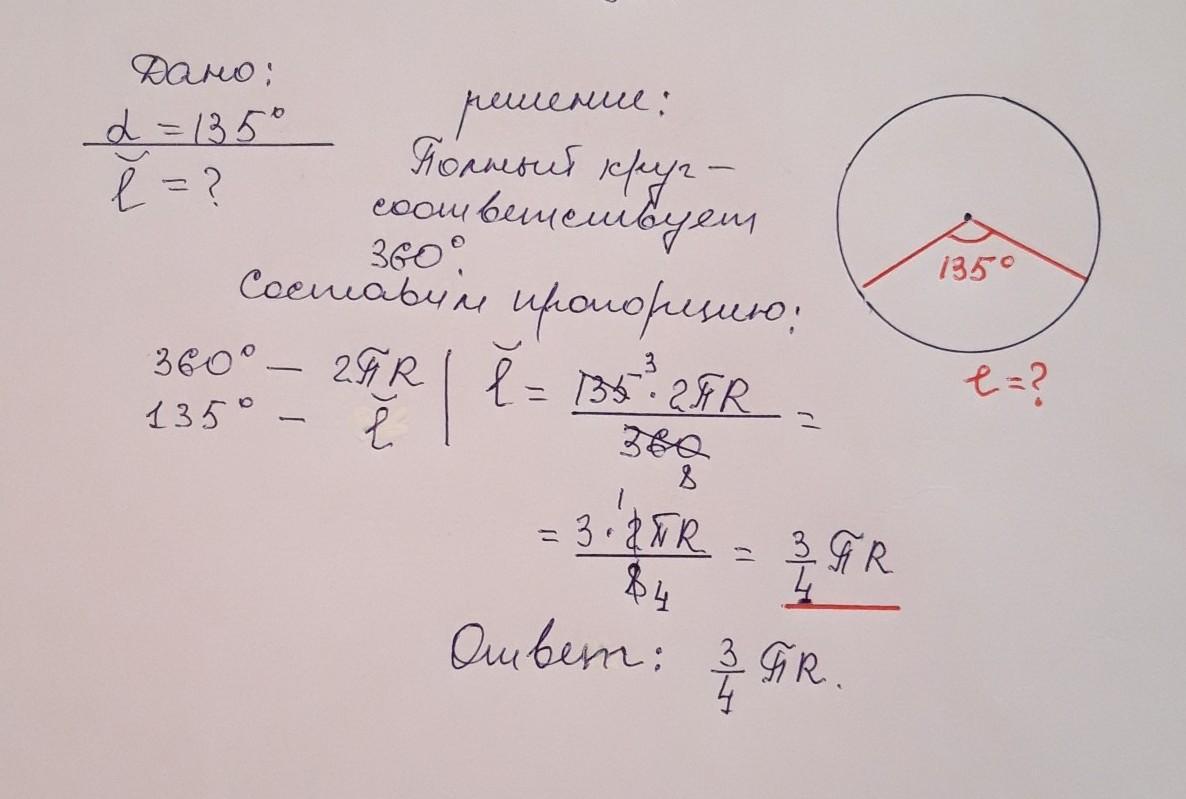 Дано:
α = 135°
l̆ = ?
решение:
Полный круг –
соответствует
360°.
Составим пропорцию:
360° – 2πR | l̆ = 135 3 · 2πR / 360 8 =
135° – l̆
= 3 · 2 1 πR / 8 4 = 3/4 πR
Ответ: 3/4 πR.
135°
l = ?